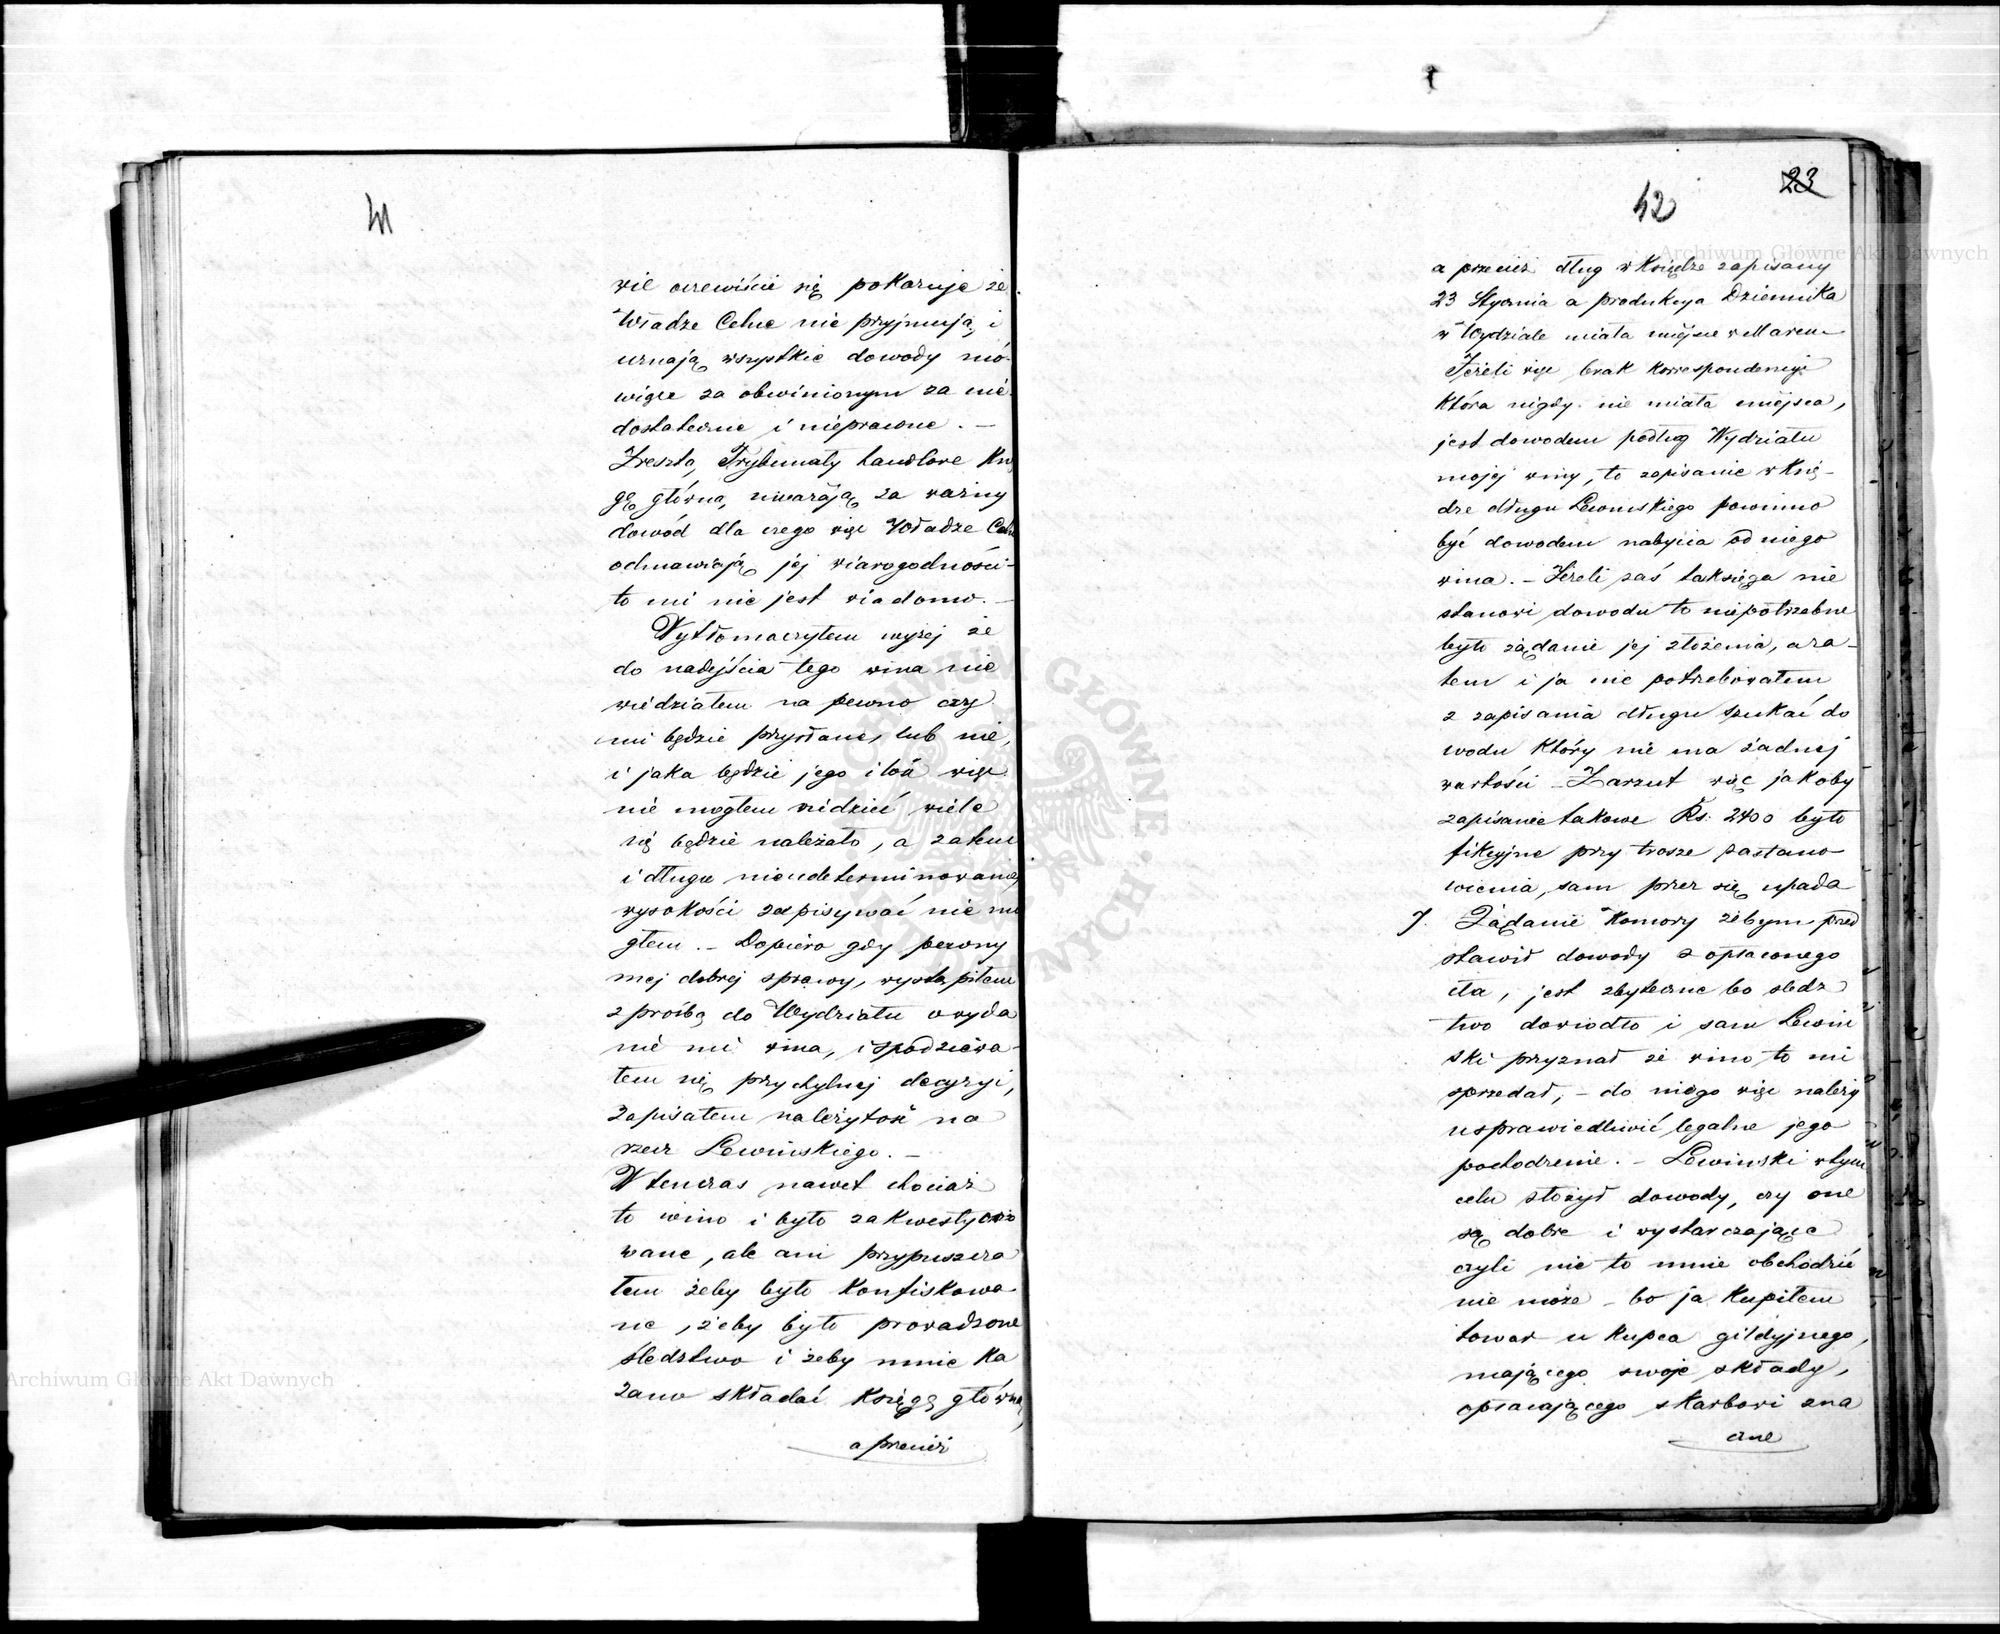 41
wie oczewiście się pokazuje że
Władze Celne nie przyjmują i
uznają wszystkie dowody mó-
wiące za obwinionym za nie
dostateczne i nieprawne. —
Zresztą, Trybunały handlowe Kse
gę główną, uważają za ważny
dowód dla czego więc Władze Celn
odmawiają jej wiarogodności—
to mi nie jest wiadomo. —
Wytłomaczyłem wyżej że
do nadejścia tego wina nie
wiedziałem na pewno czy
mi będzie przysłane, lub nie,
i jaka będzie jego ilość więc
nie mogłem wiedzieć wiele
się będzie należało, a zatem
i długu nieudeterminowanej
wysokości zapisywać nie mo
głem. — Dopiero gdy pewny
mej dobrej sprawy, wystąpiłem
z prośbą do Wydziału o wyda
nie mi wina, i spodziewa-
łem się przychylnej decyzyi,
zapisałem należytość na
rzecz Lewińskiego. —
Wtenczas nawet chociaż
to wino i było zakwestyono
wane, ale ani przypuszcza
łem żeby było konfiskowa
ne, żeby było prowadzone
śledztwo i żeby mnie ka
zano składać Księgę główną,
a przecież
23
42
a przecież dług w Księdze zapisany
23 Stycznia a produkcya Dziennika
w Wydziale miała miejsce w Marcu
Jeżeli więc brak korrespondencyi
która nigdy nie miała miejsca,
jest dowodem podług Wydziału
mojej winy, to zapisanie w Księ-
dze długu Lewinskiego powinno
być dowodem nabycia od niego
wina. — Jeżeli zaś ta księga nie
stanowi dowodu to niepotrzebne
było żądanie jej złożenia, a za-
tem i ja nie potrzebowałem
z zapisania długu szukać do
wodu który nie ma żadnej
wartości — Zarzut więc jakoby
zapisanie takowe Rs. 2400 było
fikcyjne przy trosze zastano-
wienia, sam przez się upada
7. Żądanie Komory żebym przed
stawił dowody z opłaconego
cła, jest zbyteczne bo śledz
two dowiodło i sam Lewin
ski przyznał że wino to mi
sprzedał, — do niego więc należy
usprawiedliwić legalne jego
pochodzenie. — Lewinski w tym
celu złożył dowody, czy one
są dobre i wystarczające
czyli nie to mnie obchodzić
nie może — bo ja kupiłem
towar u kupca gildyjnego,
mającego swoje składy,
opłacającego skarbowi zna
czne
Archiwum Główne Akt Dawnych
Archiwum Główne Akt Dawnych